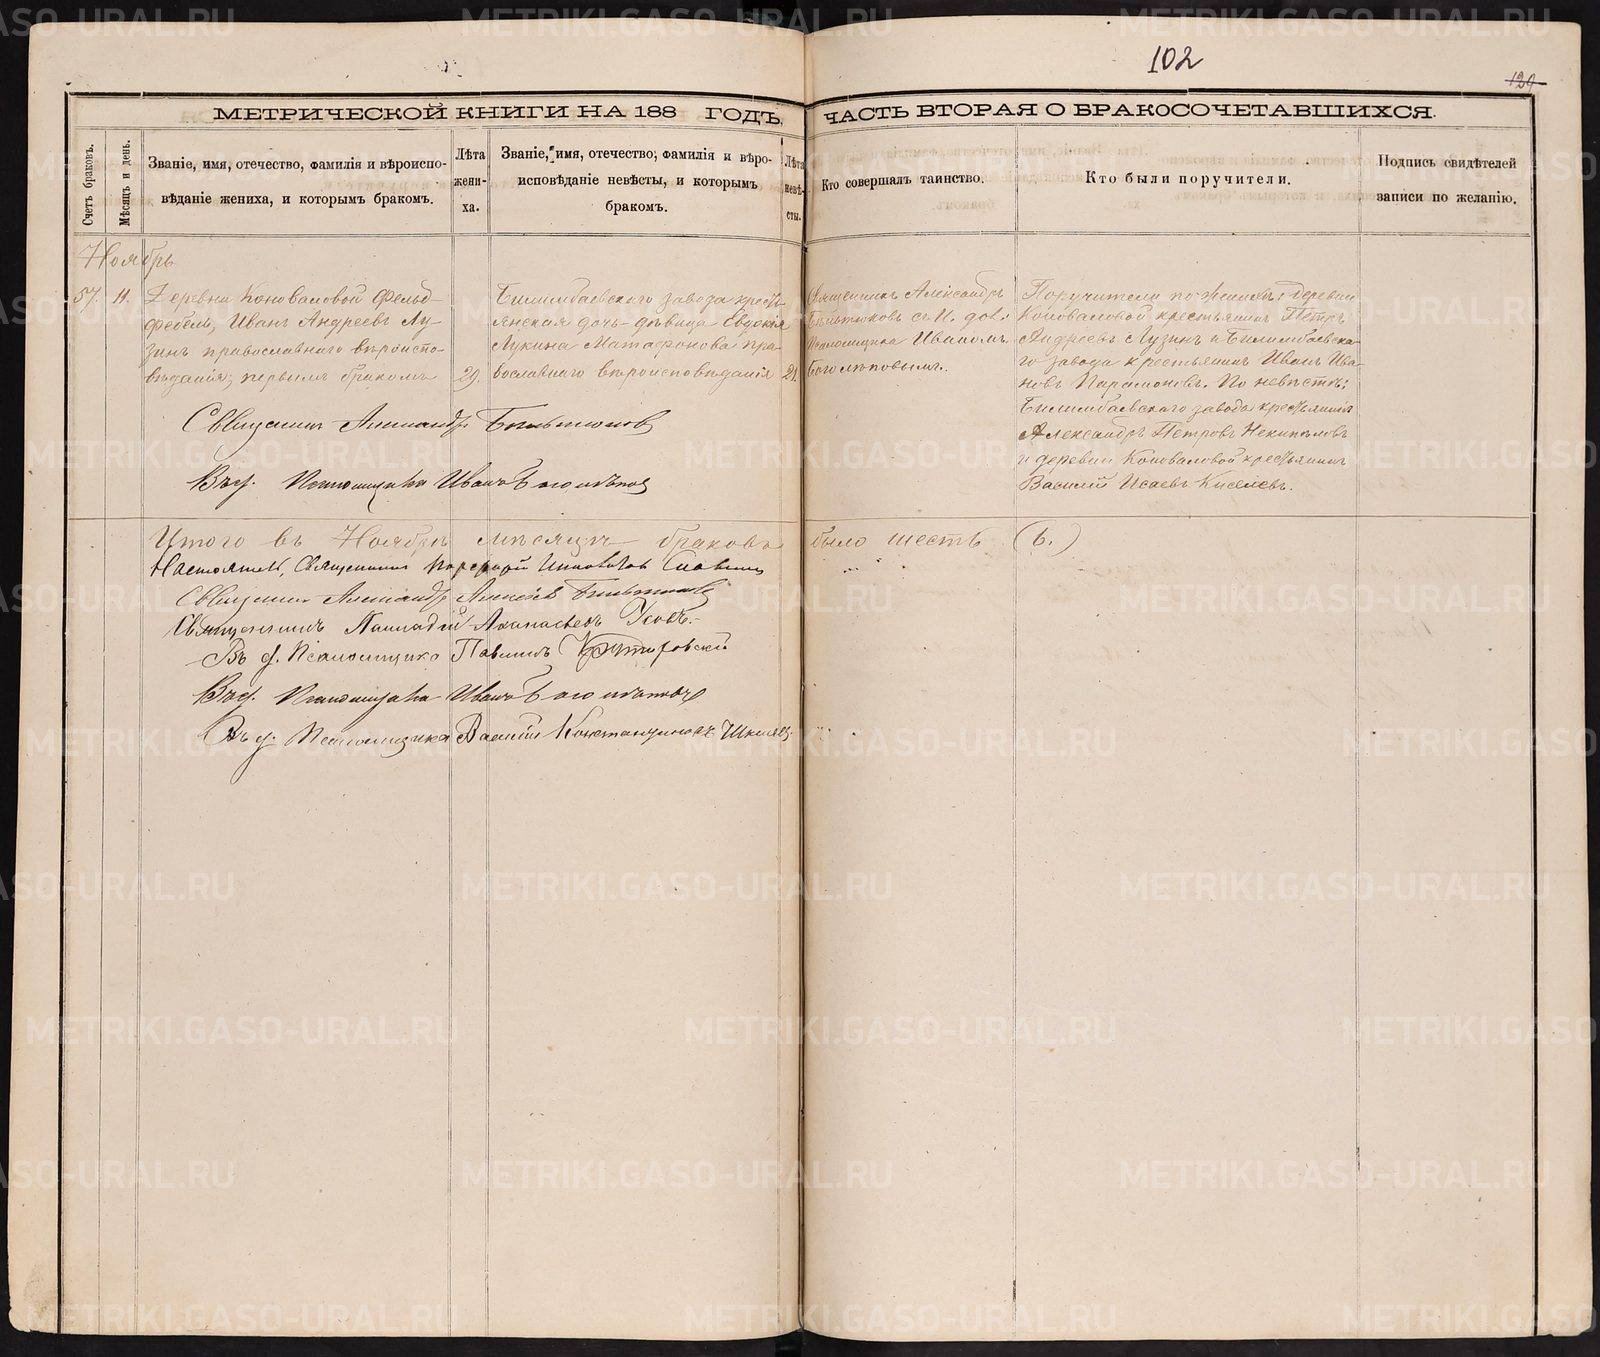 102
120
МЕТРИЧЕСКОЙ КНИГИ НА 188 ГОДЪ,
ЧАСТЬ ВТОРАЯ О БРАКОСОЧЕТАВШИХСЯ.
Счетъ браковъ.
Мѣсяцъ и день.
Званіе, имя, отечество, фамилія и вѣроиспо-
вѣданіе жениха, и которымъ бракомъ.
Лѣта
жени-
ха.
Званіе, имя, отечество, фамилія и вѣро-
исповѣданіе невѣсты, и которымъ
бракомъ.
Лѣта
невѣ-
сты.
Кто совершалъ таинство.
Кто были поручители.
Подпись свидѣтелей
записи по желанію.
Ноябрь
57.
11.
Деревни Коноваловой Фельд-
фебель, Иванъ Андреевъ Лу-
зинъ православнаго вѣроиспо-
вѣданія, первымъ бракомъ
29.
Билимбаевскаго завода кресть-
янская дочь-дѣвица Евдокія
Лукина Матафонова пра-
вославнаго вѣроисповѣданія
21.
Священникъ Александръ
Бѣльтюковъ съ И. дол.
Псаломщика Иваномъ
Боголѣповымъ.
Поручители по женихѣ: деревни
Коноваловой крестьянинъ Петръ
Андреевъ Лузинъ и Билимбаевска-
го завода крестьянинъ Иванъ Ива-
новъ Парамоновъ. По невѣстѣ:
Билимбаевскаго завода крестьянинъ
Александръ Петровъ Некипѣловъ
и деревни Коноваловой крестьянинъ
Василій Исаевъ Киселевъ.
Священникъ Александръ Бѣльтюковъ
Въ д. Псаломщика Иванъ Боголѣповъ
Итого въ Ноябрѣ мѣсяцѣ браковъ было шесть (6.)
Настоятель, Священникъ
Священникъ Александръ Алексѣевъ Бѣльтюковъ
Священникъ Палладій Аѳанасьевъ Усовъ.
Въ д. Псаломщика Павлинъ
Въ д. Псаломщика Иванъ Боголѣповъ
Въ д. Псаломщика Василій Константиновъ
METRIKI.GASO-URAL.RU